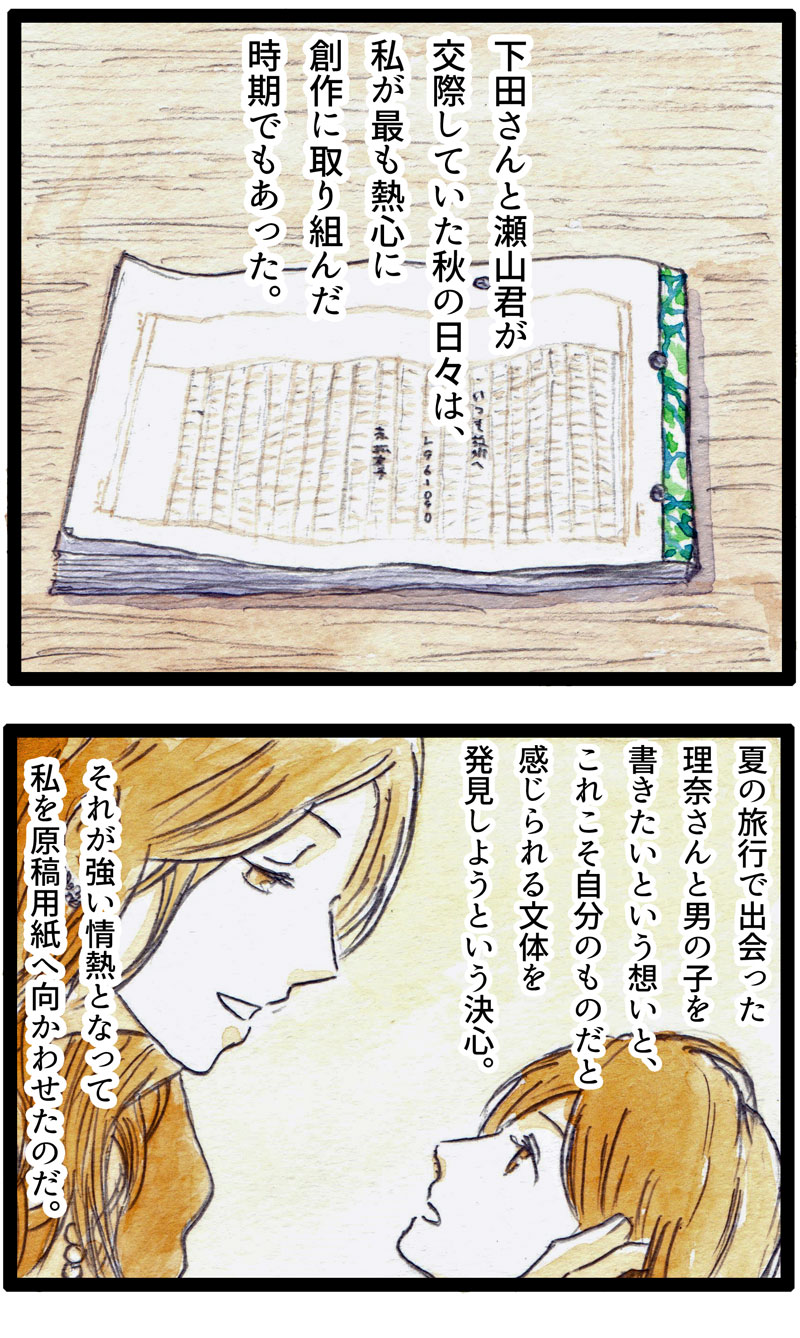 下田さんと瀬山君が
交際していた秋の日々は、
私が最も熱心に
創作に取り組んだ
時期でもあった。
夏の旅行で出会った
理奈さんと男の子を
書きたいという想いと、
これこそ自分のものだと
感じられる文体を
発見しようという決心。
それが強い情熱となって
私を原稿用紙へ向かわせたのだ。